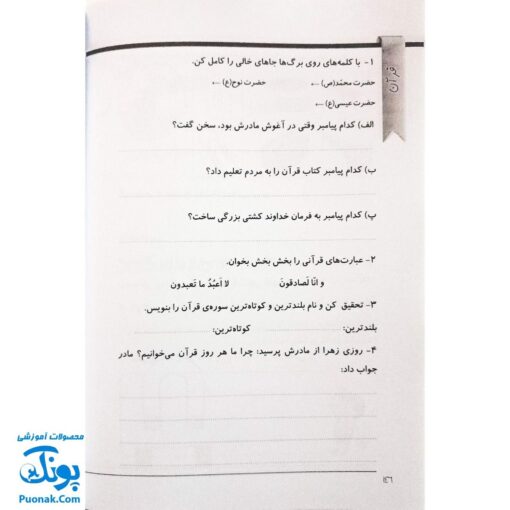 قرآن
۱- با کلمه‌های روی برگ‌ها جاهای خالی را کامل کن.
حضرت محمّد(ص) ← حضرت نوح(ع) ←
حضرت عیسی(ع) ←
الف) کدام پیامبر وقتی در آغوش مادرش بود، سخن گفت؟
ب) کدام پیامبر کتاب قرآن را به مردم تعلیم داد؟
پ) کدام پیامبر به فرمان خداوند کشتی بزرگی ساخت؟
۲- عبارت‌های قرآنی را بخش بخش بخوان.
و انّا لَصادقونَ لا اَعبُدُ ما تَعبدون
۳- تحقیق کن و نام بلندترین و کوتاه‌ترین سوره‌ی قرآن را بنویس.
بلندترین: کوتاه‌ترین:
۴- روزی زهرا از مادرش پرسید: چرا ما هر روز قرآن می‌خوانیم؟ مادر
جواب داد:
محصولات آموزشی
پونک
Puonak.Com
۱۴۶